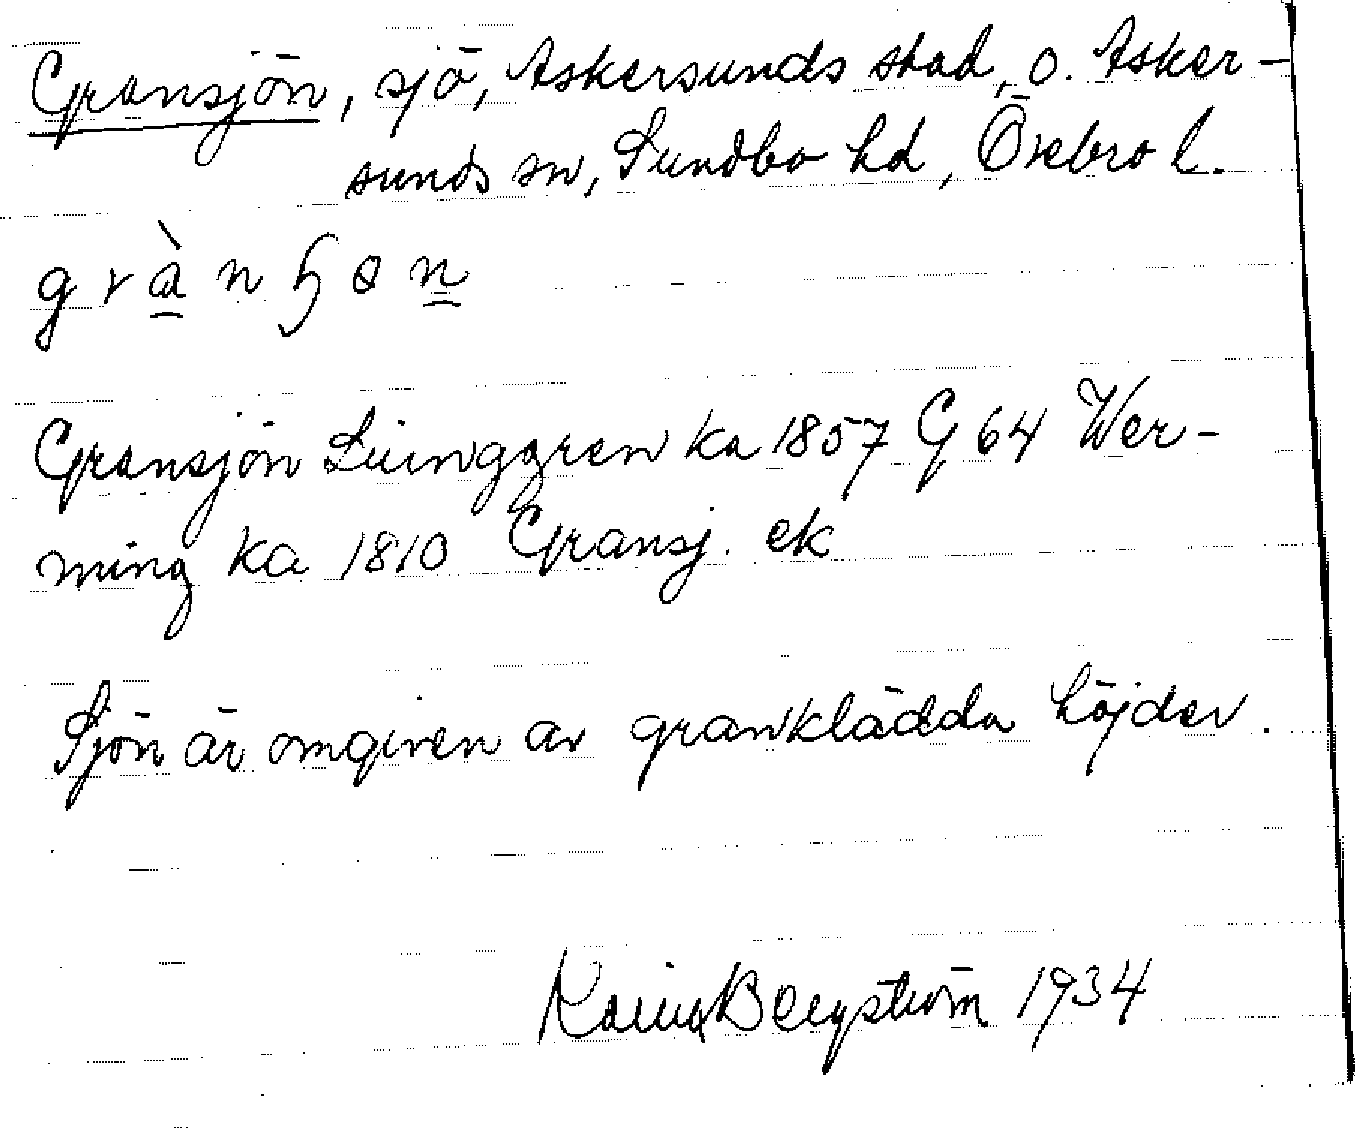 Gransjön, sjö, Askersunds stad, o. Asker-
sunds sn, Sundbo hd, Örebro l.
Gransjön Ljunggren ka 1857 G 64 Wer-
ming ka 1810 Gransj. ek
Sjön är omgiven av granklädda höjder.
Karin Bergström 1934